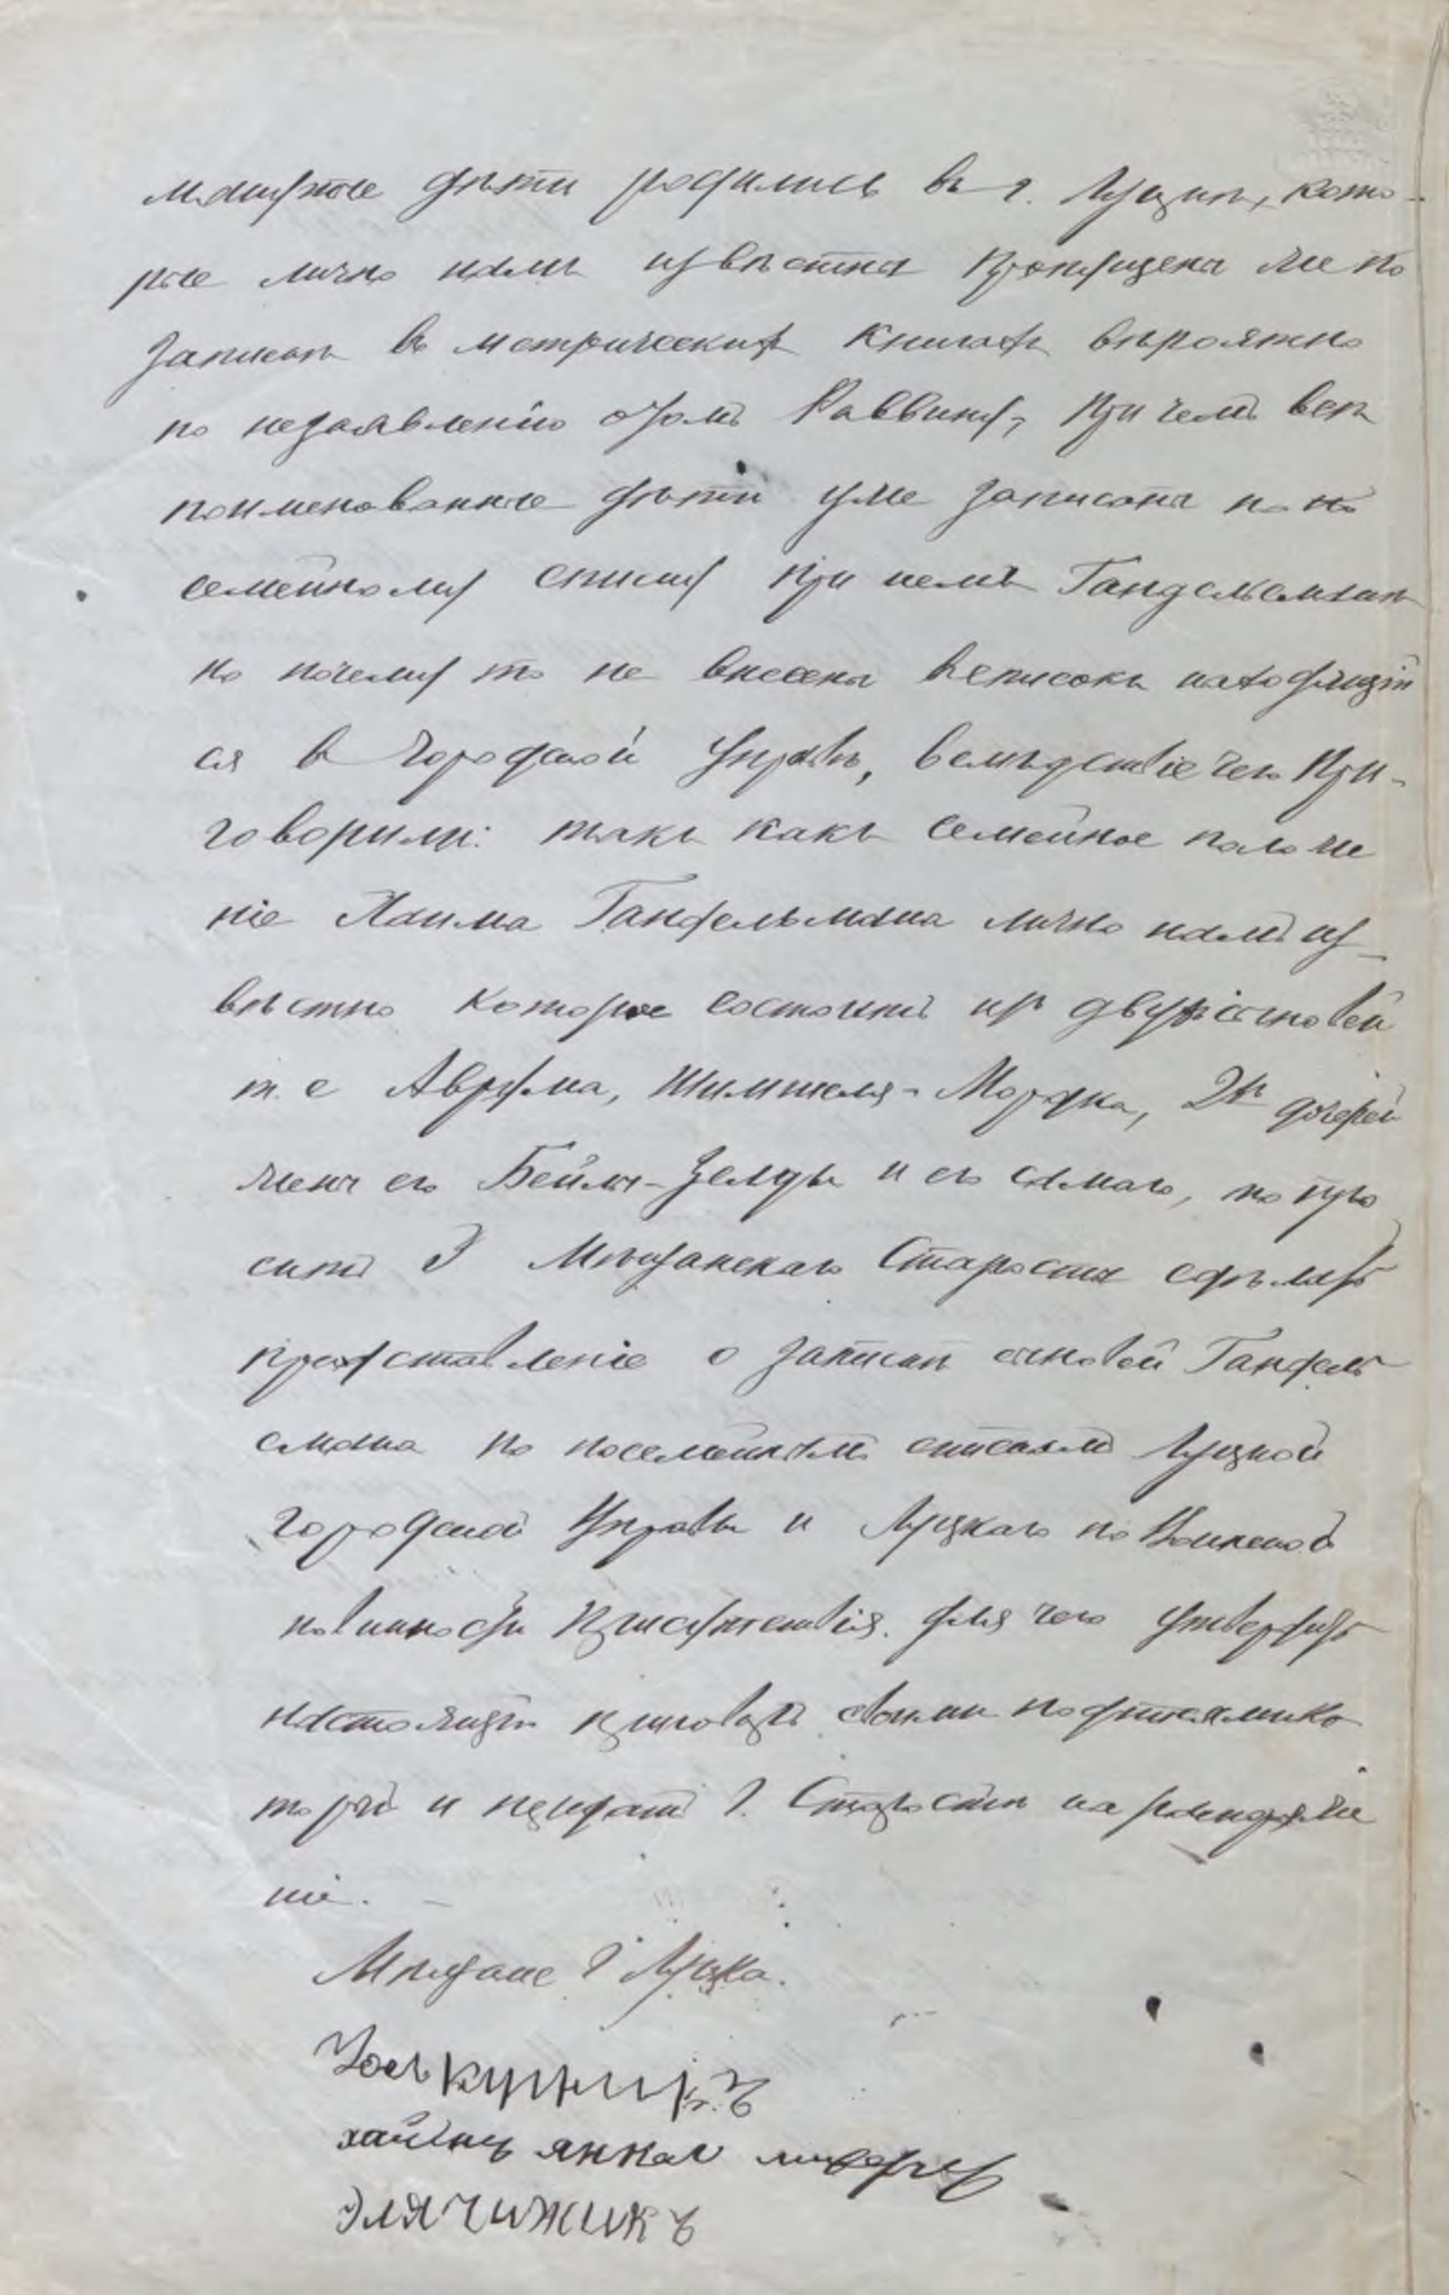 дѣти родились въ г. Луцкѣ, кото-
рые лично намъ извѣстны пропущены же по
записи въ метрическихъ книгахъ вѣроятно
по незаявленію о томъ Раввину, при чемъ всѣ
поименованные дѣти уже записаны по по
семейному списку при немъ Гандельсманѣ
но почему то не внесены въ списокъ находящій
ся въ Городской Управѣ, вслѣдствіе чего При-
говорили: такъ какъ семейное положе
ніе Хаима Гандельсмана лично намъ из-
вѣстно которое состоитъ изъ двухъ сыновей
т. е Аврума, Шимшеля-Мордка, 2хъ дочерей
жены его Бейлы-Зельды и его самаго, то про
сить Г Мѣщанскаго Старосты сдѣлать
представленіе о записи сыновей Гандель
смана по посемейнымъ спискамъ Луцкой
городской Управы и Луцкаго по Воинской
повинности Присутствія. Для чего утвердить
настоящій приговоръ своими подписями ко
торый и передать Г. Старостѣ на
ніе.
Мѣщане Г Луцка.
янкел
Эля Чижикъ